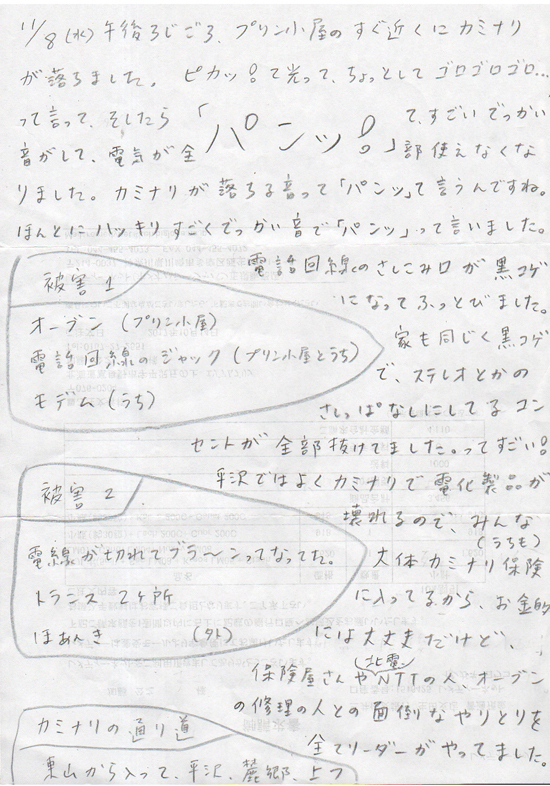 11/8(水)午後3じごろ、プリン小屋のすぐ近くにカミナリ
が落ちました。ピカッ!て光って、ちょっとしてゴロゴロゴロ…
って言って、そしたら「パンッ!」て、すごいでっかい
音がして、電気が全部使えなくな
りました。カミナリが落ちる音って「パンッ」て言うんですね。
ほんとにハッキリすごくでっかい音で「パンッ」って言いました。
電話回線のさしこみ口が黒コゲ
になってふっとびました。
家も同じく黒コゲ
で、ステレオとかの
さしっぱなしにしてるコン
セントが全部抜けてました。ってすごい!
平沢ではよくカミナリで電化製品が
壊れるので、みんな
(うちも)
大体カミナリ保険
に入ってるから、お金的
には大丈夫だけど、
保険屋さんや(北電)NTTの人、オーブン
の修理の人との面倒なやりとりを
全てリーダーがやってました。
被害1
オーブン(プリン小屋)
電話回線のジャック(プリン小屋とうち)
モデム(うち)
被害2
電線が切れてブラ〜ンってなってた。
トランス 2ケ所
ほあんき 〃 (外)
カミナリの通り道
東山から入って、平沢、麓郷、上フ